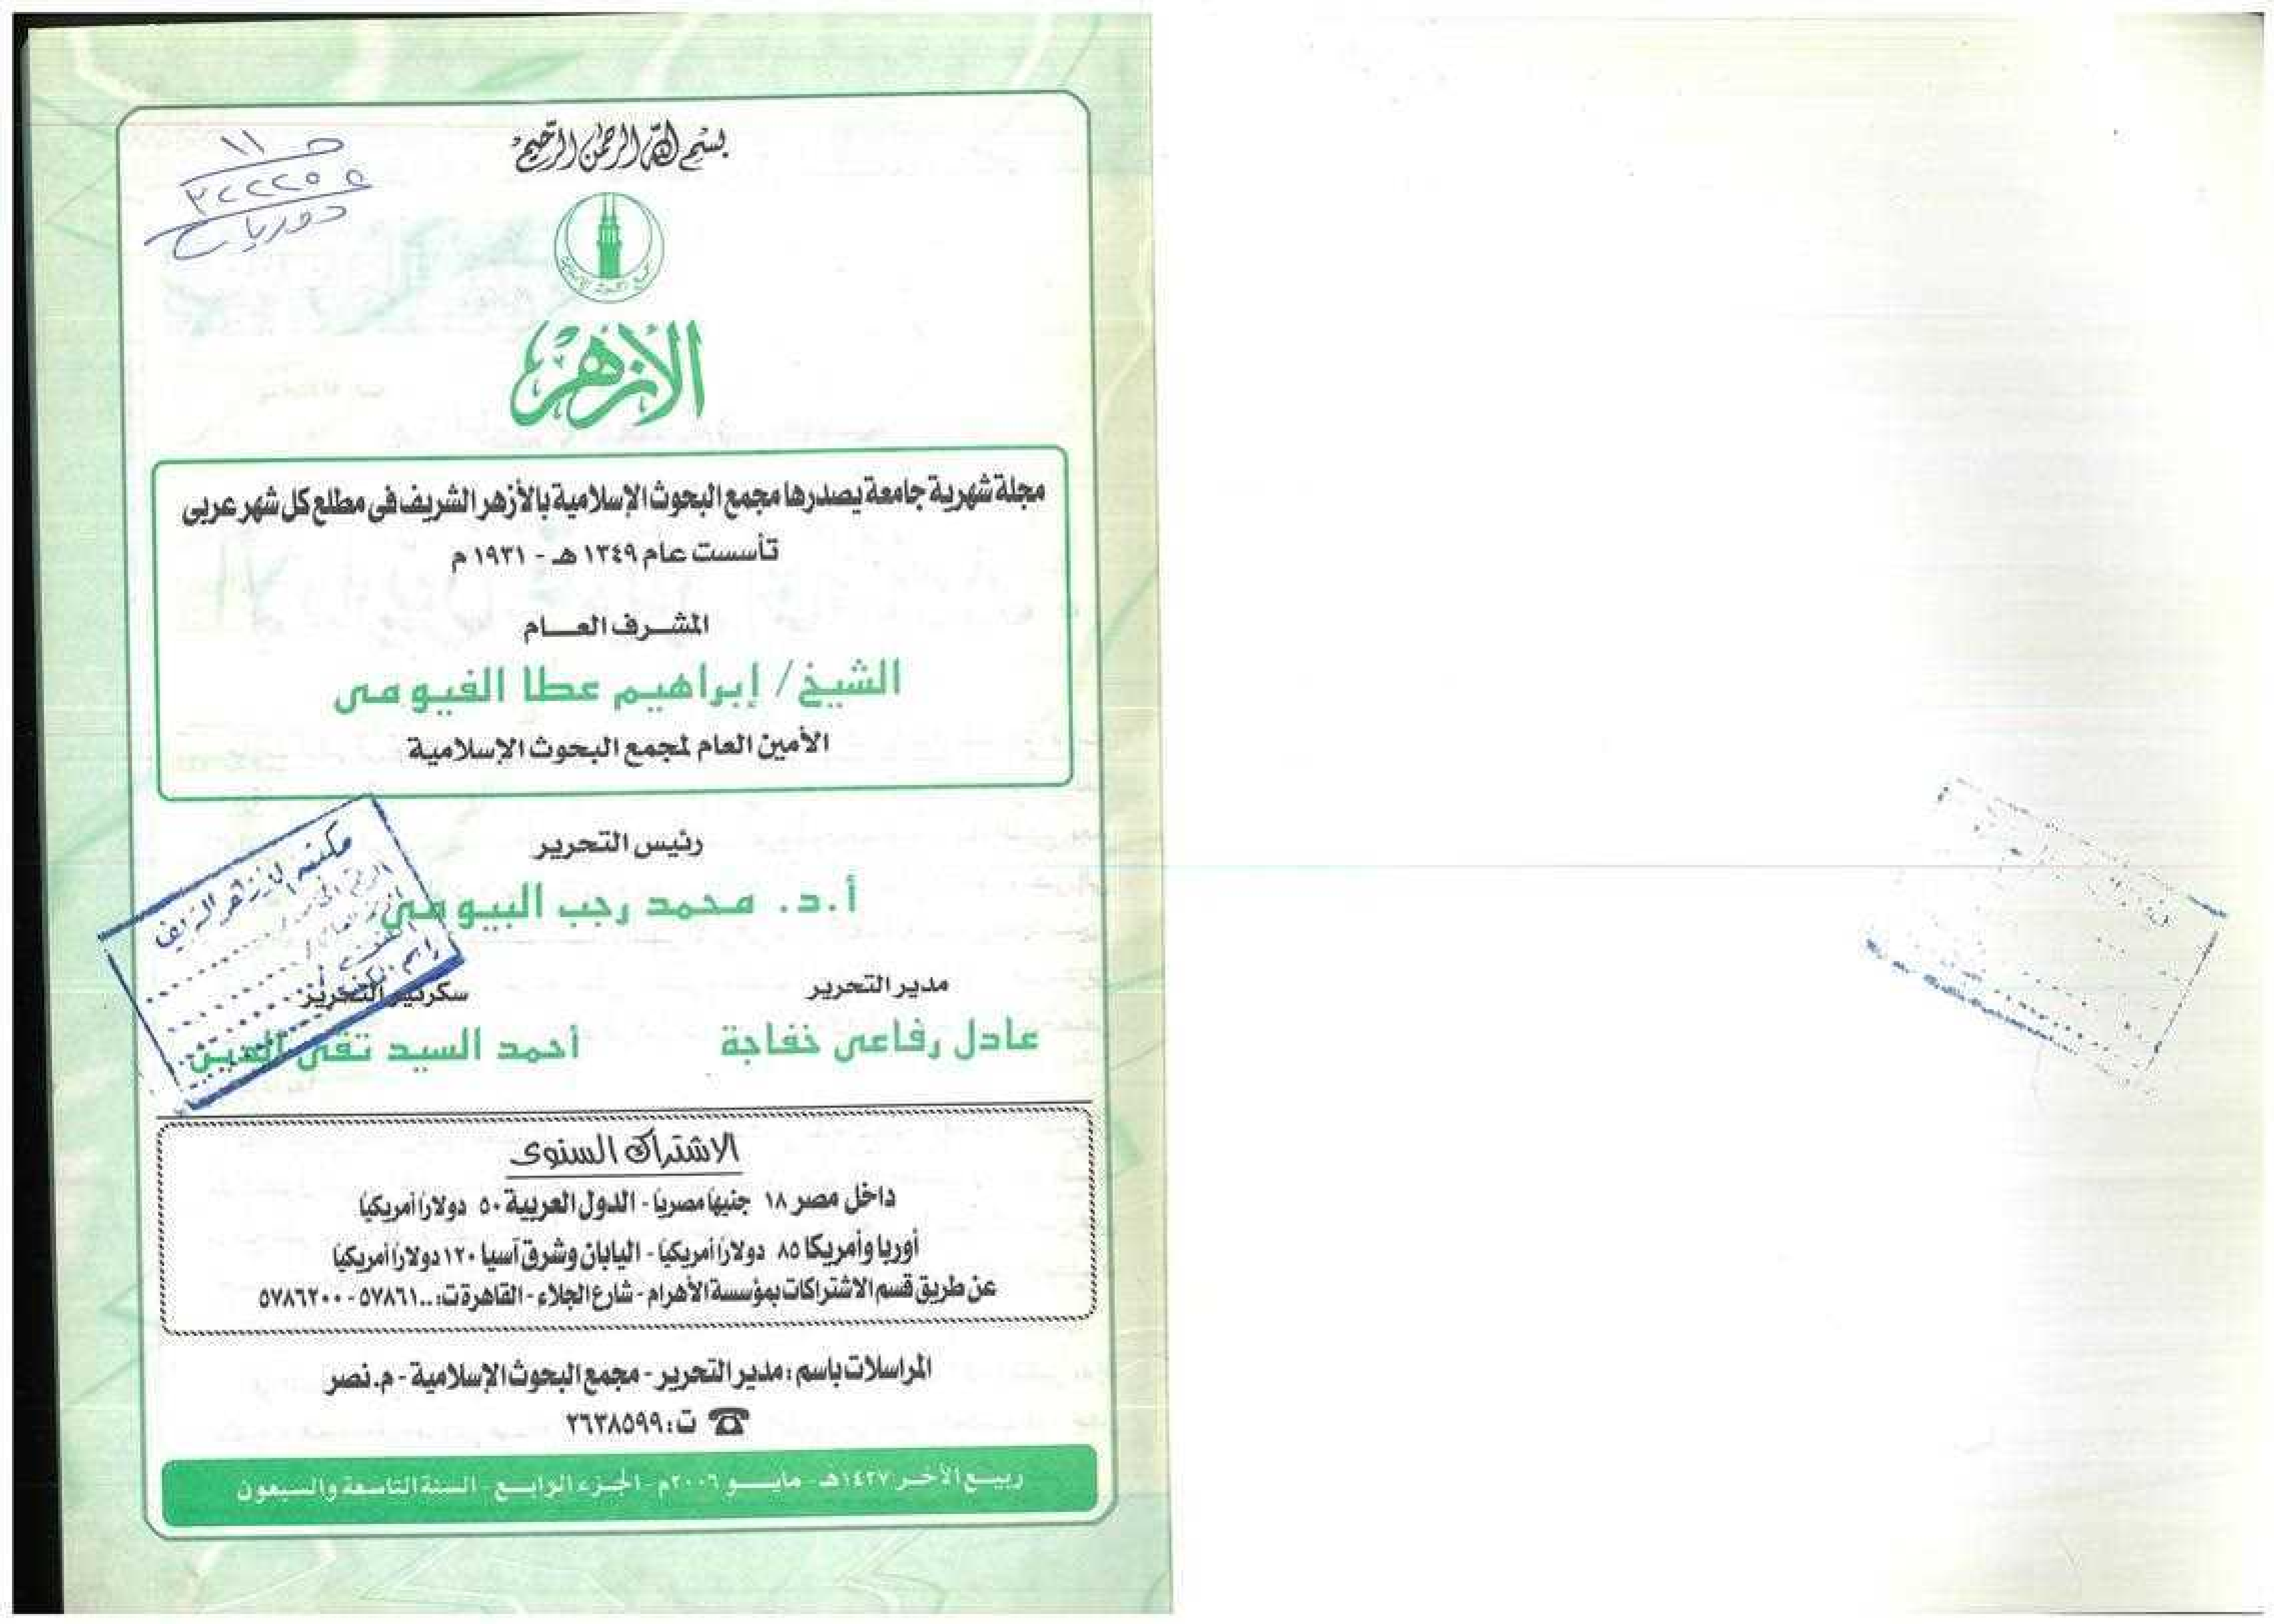 بسم الله الرحمن الرحيم
١١
دوريات
مجمع البحوث الإسلامية
الأزهر
مجلة شهرية جامعة يصدرها مجمع البحوث الإسلامية بالأزهر الشريف فى مطلع كل شهر عربى
تأسست عام ١٣٤٩ هـ - ١٩٣١ م
المشرف العام
الشيخ / إبراهيم عطا الفيومى
الأمين العام لمجمع البحوث الإسلامية
رئيس التحرير
أ.د. محمد رجب البيومى
مكتبة الأزهر الشريف
مدير التحرير
عادل رفاعى خفاجة
سكرتير التحرير
أحمد السيد تقى الدين
الاشتراك السنوى
داخل مصر ١٨ جنيهًا مصريًا - الدول العربية ٥٠ دولارًا أمريكيًا
أوربا وأمريكا ٨٥ دولارًا أمريكيًا - اليابان وشرق آسيا ١٢٠ دولارًا أمريكيًا
عن طريق قسم الاشتراكات بمؤسسة الأهرام - شارع الجلاء - القاهرة ت: ٥٧٨٦١٠٠ - ٥٧٨٦٢٠٠
المراسلات باسم : مدير التحرير - مجمع البحوث الإسلامية - م. نصر
ت: ٢٦٣٨٥٩٩
ربيع الآخر ١٤٢٧هـ - مايو ٢٠٠٦م - الجزء الرابع - السنة التاسعة والسبعون